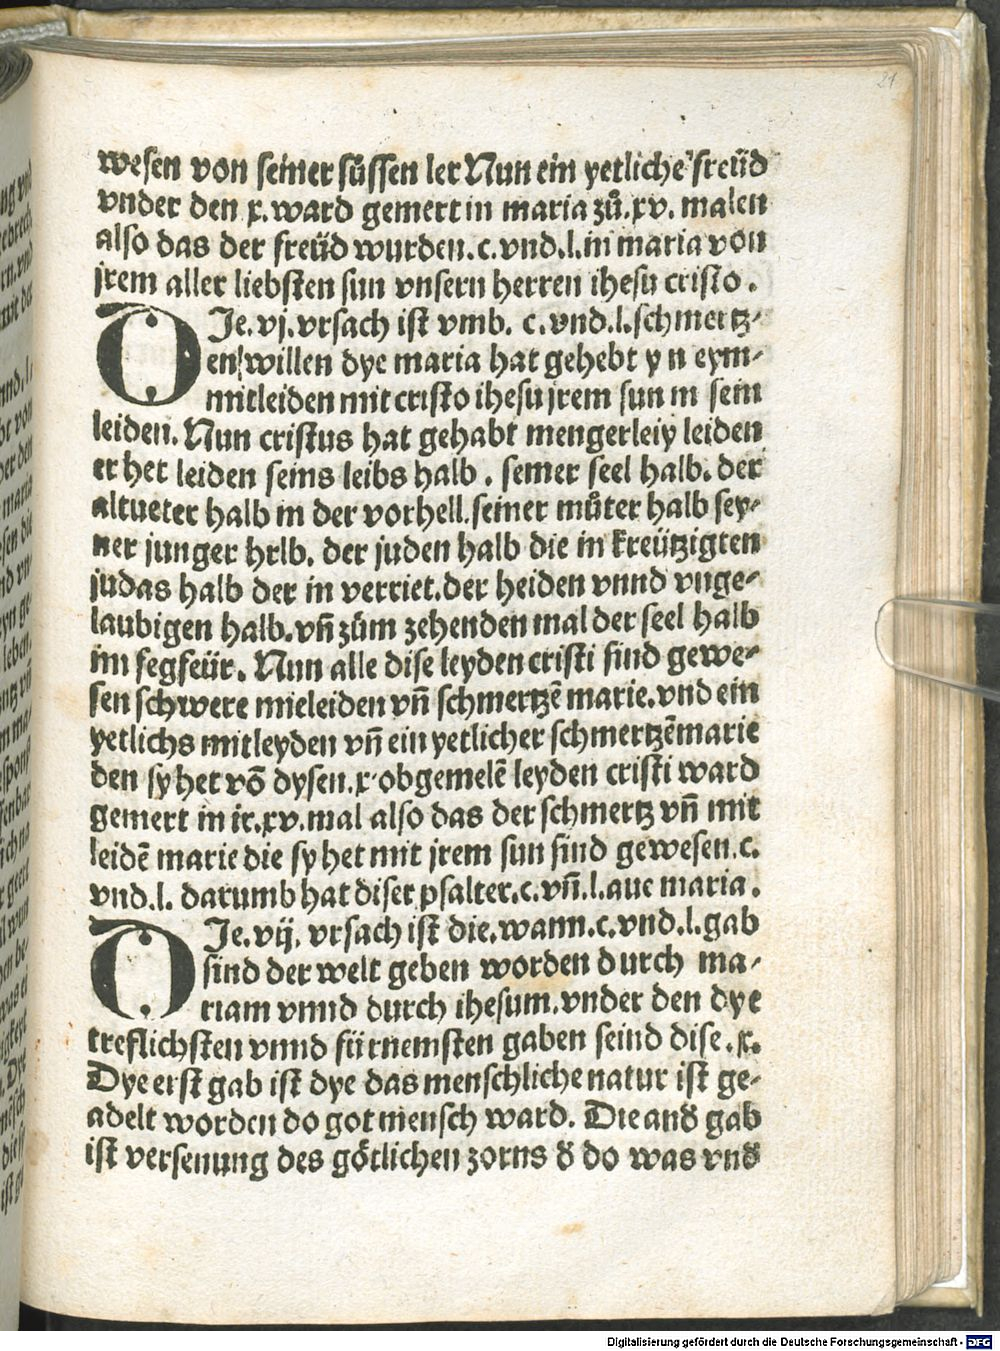 21
wesen von seiner sůssen ler Nun ein yetliche freüd
vnder den .x. ward gemert in maria zů .xv. malen
also das der freüd wurden .c. vnd .l. in maria von
jrem aller liebsten sun vnsern herren ihesu cristo .
DJe .vj. vrsach ist vmb . c. vnd .l. schmertz⸗
en willen dye maria hat gehebt y n eym⸗
mitleiden mit cristo ihesu jrem sun in sein
leiden. Nun cristus hat gehabt mengerleiy leiden
er het leiden seins leibs halb . seiner seel halb. der
altueter halb in der vorhell. seiner můter halb sey⸗
ner junger hrlb. der juden halb die in kreützigten
judas halb der in verriet. der heiden vnnd vnge⸗
laubigen halb. vñ zům zehenden mal der seel halb
im fegfeür. Nun alle dise leyden cristi sind gewe⸗
sen schwere mieleiden vñ schmertzē marie. vnd ein
yetlichs mitleyden vñ ein yetlicher schmertzē marie
den sy het võ dysen .x. obgemelē leyden cristi ward
gemert in ir .xv. mal also das der schmertz vñ mit
leidē marie die sy het mit jrem sun sind gewesen .c.
vnd .l. darumb hat diser psalter .c. vñ .l. aue maria .
DJe .vij. vrsach ist die. wann .c. vnd .l. gab
sind der welt geben worden durch ma⸗
riam vnnd durch ihesum. vnder den dye
treflichsten vnnd fürnemsten gaben seind dise .x.
Dye erst gab ist dye das menschliche natur ist ge⸗
adelt worden do got mensch ward. Die and̄ gab
ist versenung des götlichen zorns d̄ do was vnd̄
Digitalisierung gefördert durch die Deutsche Forschungsgemeinschaft - DFG